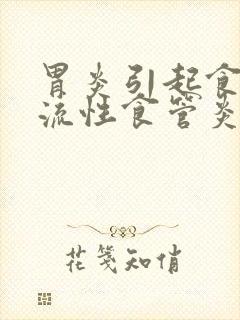 胃炎引起食
流性食管炎
花笺知俏